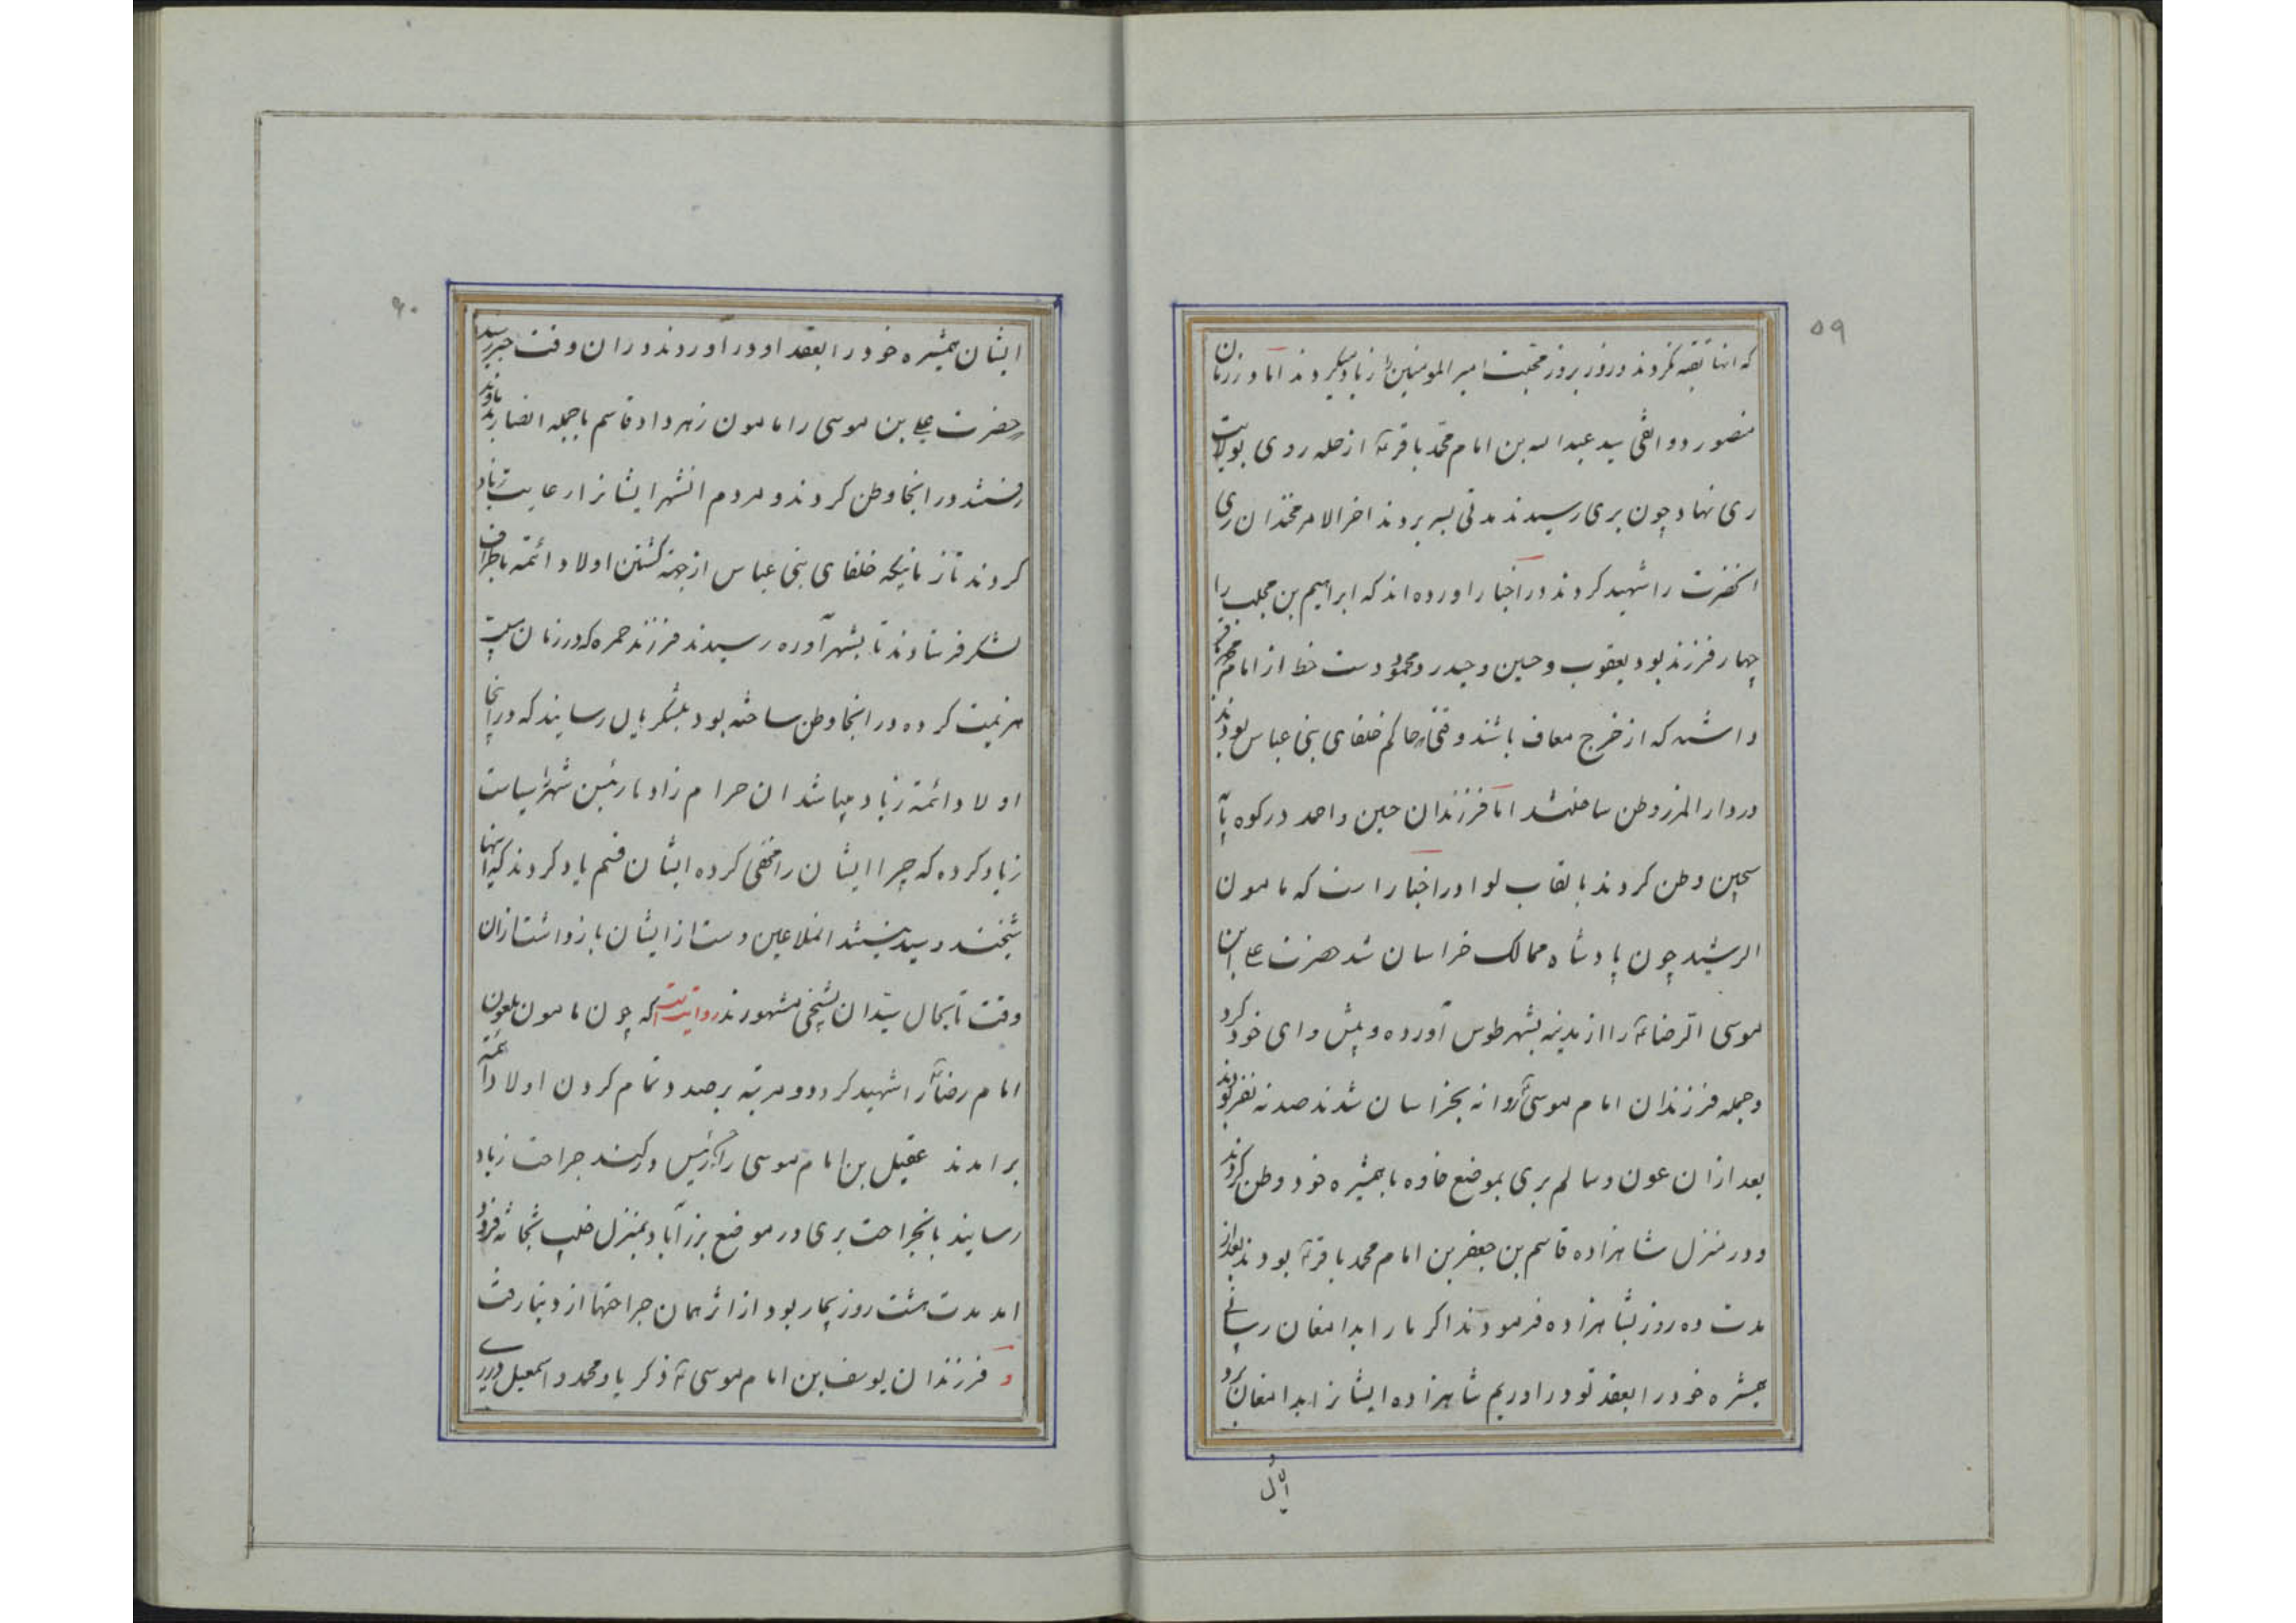 ۵۹
که انها تقیه نکردند و روز بروز محبت امیر المومنین را زیاد میکردند اما در زمان
منصور دوانقی سید عبد الله بن امام محمد باقر ع از حله روی بولایت
ری نهاد چون بری رسیدند مدتی بسر بردند اخر الامر ری
انحضرت را شهید کردند در اخبار اورده اند که ابراهیم بن را
چهار فرزند بود یعقوب و حسین و حیدر و محمود دست خط از امام
داشتند که از خرج معاف باشند وقتی حاکم خلفای بنی عباس بودند
در دار المرز وطن ساختند اما فرزندان حسین و احمد در کوه پا
وطن کردند بالقاب لوا در اخبار است که مامون
الرشید چون پادشاه ممالک خراسان شد حضرت علی ابن
موسی الرضا ع را از مدینه بشهر طوس آورده و پیش وای خود کرد
و جمله فرزندان امام موسی ع روانه بخراسان شدند صد نه نفر بودند
بعد ازان عون و سالم بری بموضع خاوه با همشیره خود وطن کردند
و در منزل شاهزاده قاسم بن جعفر بن امام محمد باقر ع بودند بعد از
مدت ده روز بشاهزاده فرمودند اگر ما را بدامغان رسانی
همشره خود را بعقد تو در اوریم شاهزاده ایشانرا بدامغان برد
۶۰
ایشان همشیره خود را بعقد او در اوردند در ان وقت خبر رسید
که حضرت علی بن موسی را مامون زهر داد قاسم با جمله انصار
رفتند در انجا وطن کردند و مردم انشهر ایشانرا رعایت زیاد
کردند تا زمانیکه خلفای بنی عباس از جهة کشتن اولاد ائمه باطراف
لشکر فرستادند تا بشهر آوه رسیدند فرزند حمزه که در زمان
هزیمت کرده در انجا وطن ساخته بود بلشکریان رسانیند که در اینجا
اولاد ائمه زیاد میباشد ان حرام زاد ما رئیس شهر را سیاست
زیاد کرده که چرا ایشان را مخفی کرده ایشان قسم یاد کردند که اینها
شیخند و سید نیستند انملاعین دست از ایشان باز داشت ازان
وقت تا بحال سیدان بشیخی مشهورند روایت است که چون مامون ملعون
امام رضا ع را شهید کرد دو مرتبه برصدد تمام کردن اولاد ائمه
برامدند عقیل بن امام موسی را جراحت زیاد
رسانیند بانجراحت بری در موضع برز آباد بمنزل فرود
امد مدت هشت روز بیمار بود از اثر همان جراحتها از دنیا رفت
و فرزندان یوسف بن امام موسی ع ذکریا و محمد و اسمعیل در ری